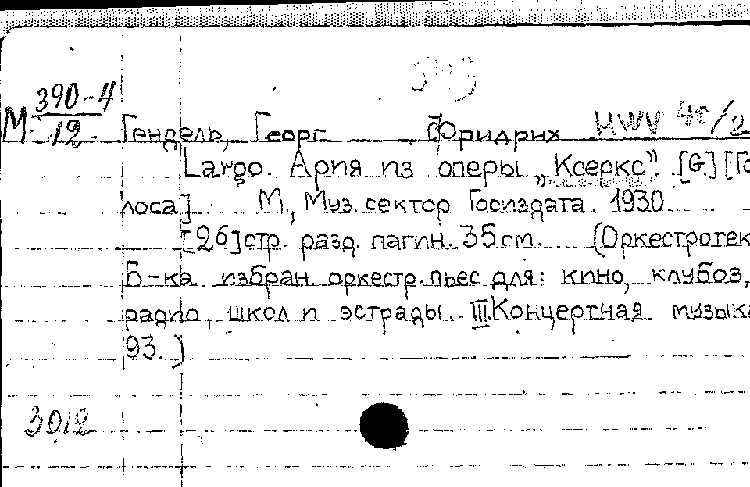 М 390-4/12 Гендель, Георг Фридрих HWV 40/2
Largo. Ария из оперы „Ксеркс". [G] [Го
лоса] М., Муз. сектор Госиздата. 1930
[26] стр. разд. пагин. 35 см. (Оркестротек
Б-ка избран. оркестр. пьес для: кино, клубов,
радио, школ и эстрады. III. Концертная музыка
93.)
3012